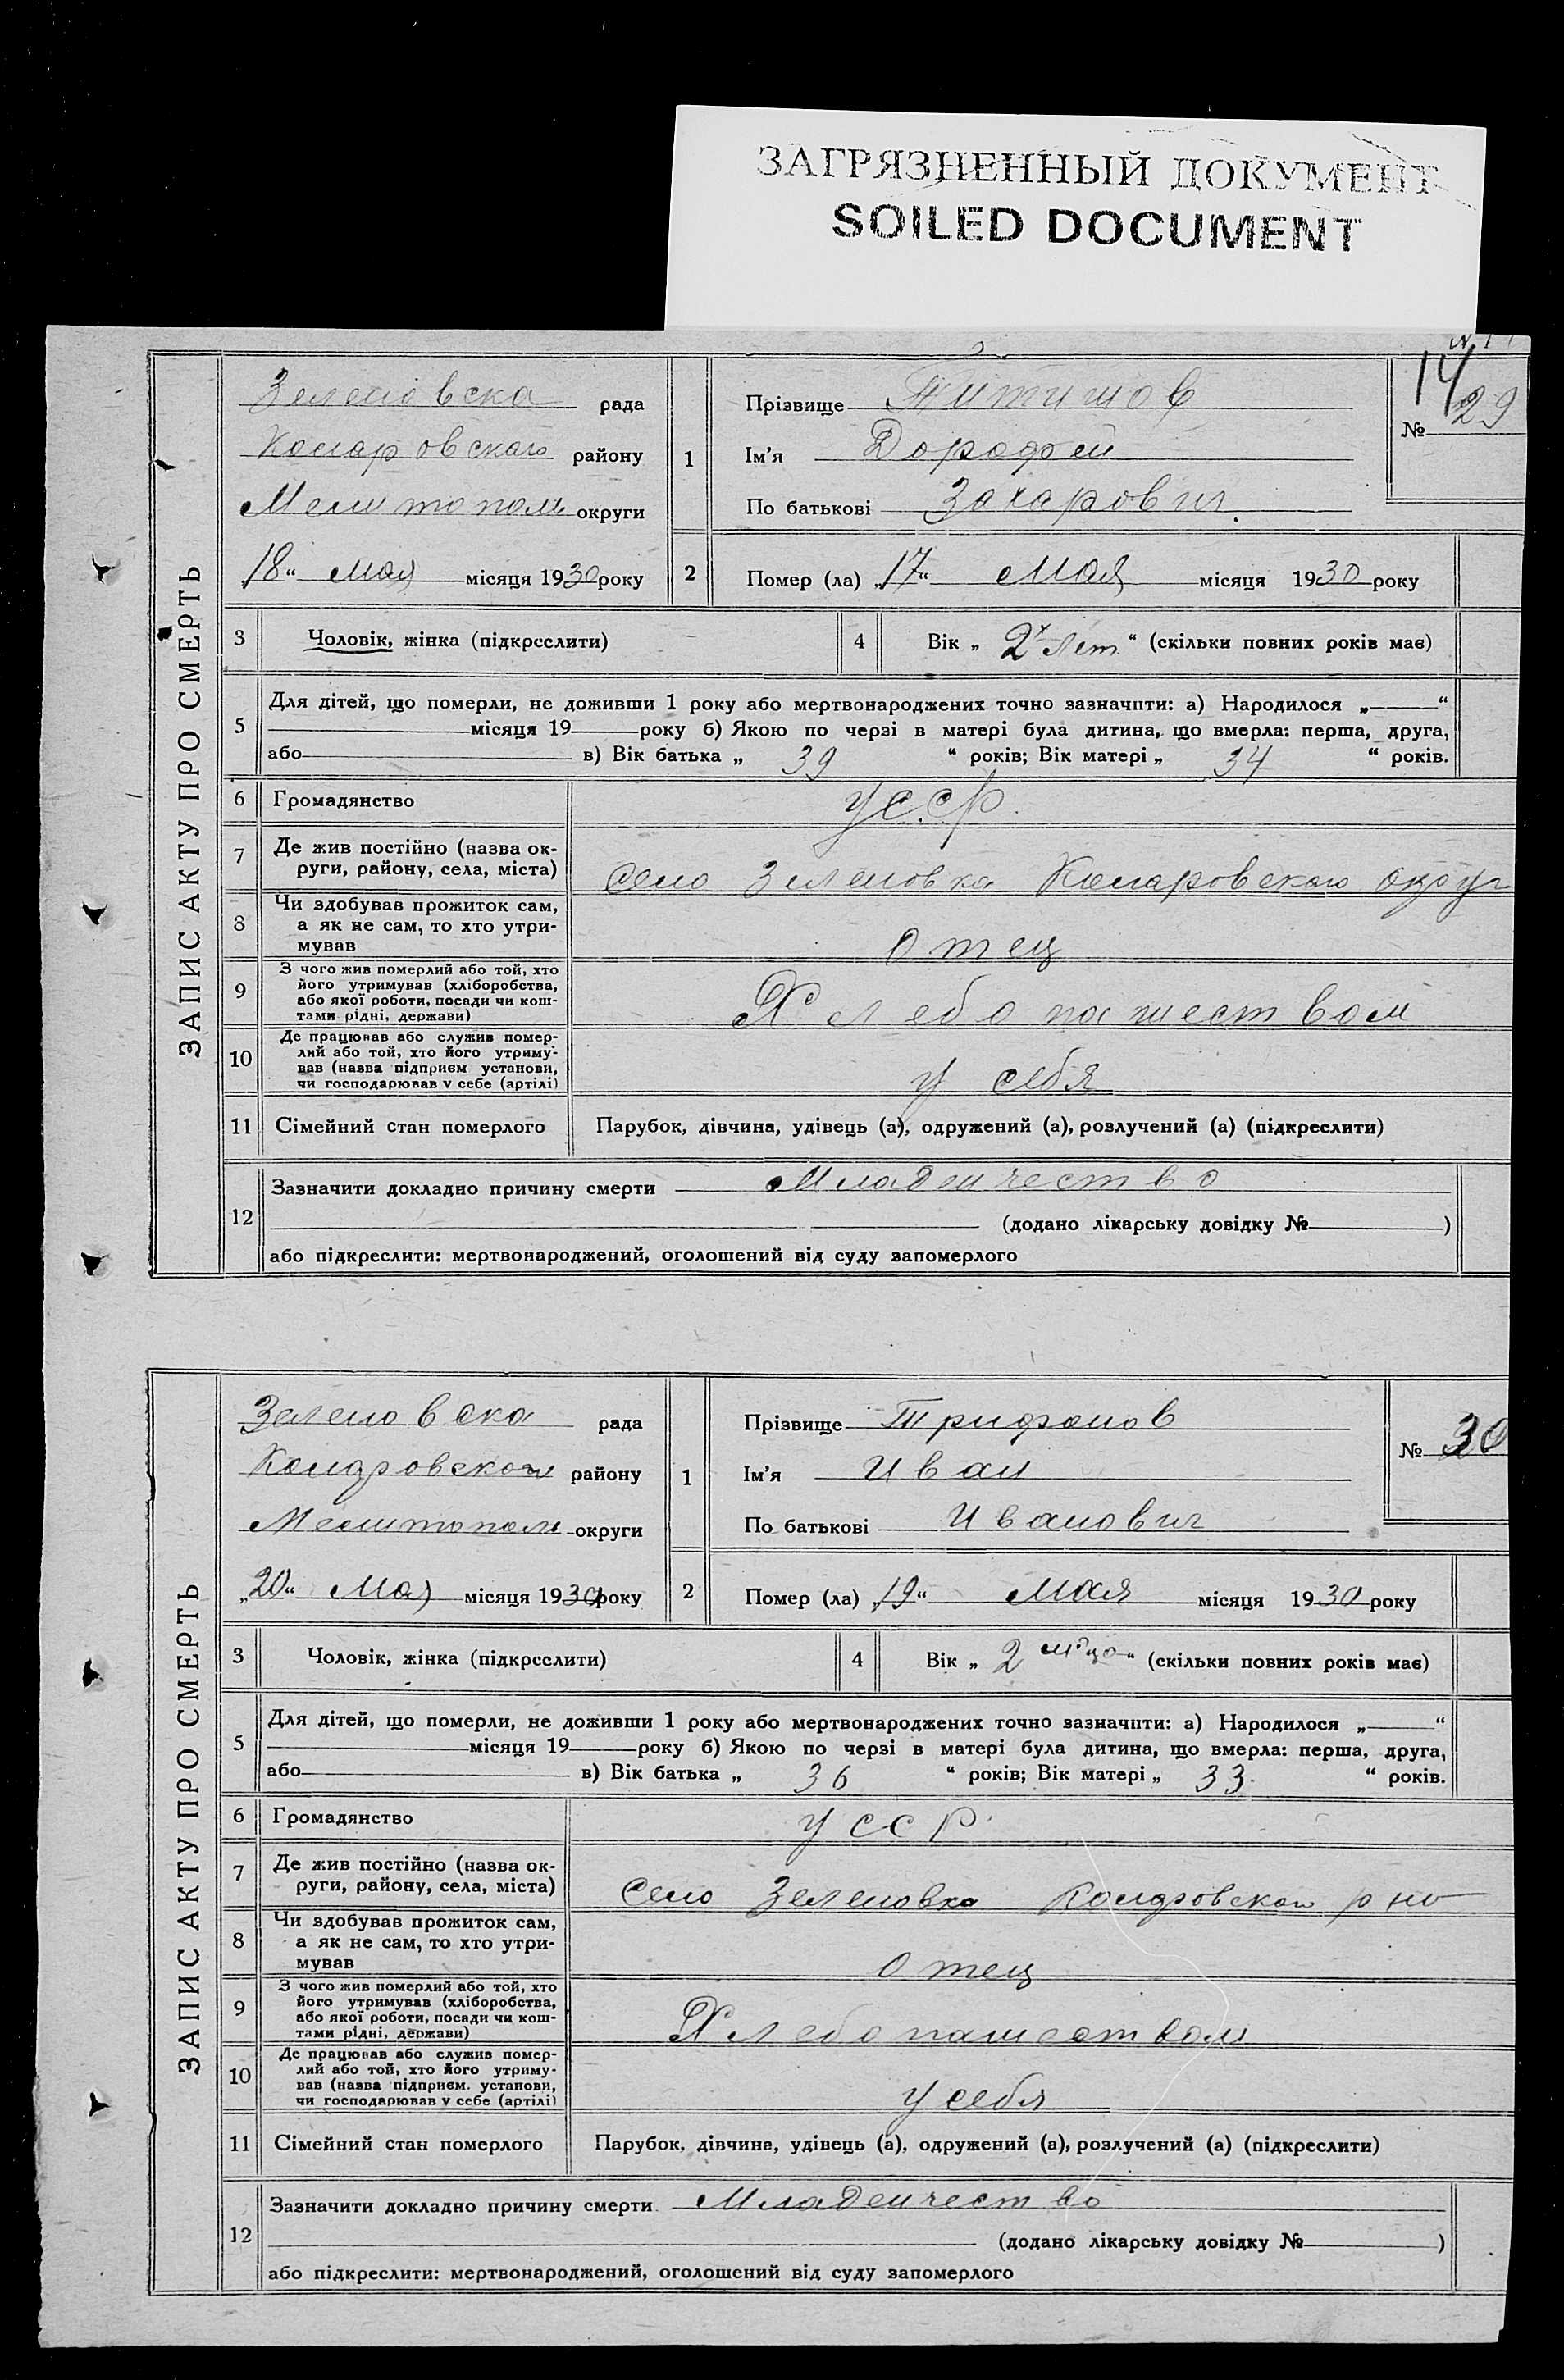 ЗАГРЯЗНЕННЫЙ ДОКУМЕНТ
SOILED DOCUMENT
14
ЗАПИС АКТУ ПРО СМЕРТЬ
Зеленовска рада
Комаровскаго району
Мелитопол округи
18“ мая місяця 1930 року
1
Прізвище Титишов
Ім'я Дорофей
По батькові Захарович.
№ 29
2 Помер (ла) „17“ Мая місяця 1930 року
3 Чоловік, жінка (підкреслити)
4 Вік „ 2х лет “ (скільки повних років має)
5 Для дітей, що померли, не доживши 1 року або мертвонароджених точно зазначити: а) Народилося „ “
місяця 19 року б) Якою по черзі в матері була дитина, що вмерла: перша, друга,
або в) Вік батька „ 39 “ років; Вік матері „ 34 “ років.
6 Громадянство УССР.
7 Де жив постійно (назва ок-
руги, району, села, міста) Село Зеленовка Комаровскаго округ
8 Чи здобував прожиток сам,
а як не сам, то хто утри-
мував Отец
9 З чого жив померлий або той, хто
його утримував (хліборобства,
або якої роботи, посади чи кош-
тами рідні, держави) Хлебопашеством
10 Де працював або служив помер-
лий або той, хто його утриму-
вав (назва підприєм установи,
чи господарював у себе (артілі) у себя
11 Сімейний стан померлого Парубок, дівчина, удівець (а), одружений (а), розлучений (а) (підкреслити)
12 Зазначити докладно причину смерти Младенчество
(додано лікарську довідку № )
або підкреслити: мертвонароджений, оголошений від суду запомерлого
ЗАПИС АКТУ ПРО СМЕРТЬ
Зеленовска рада
Комаровского району
Мелитопол округи
„20“ Мая місяця 1930 року
1
Прізвище Трифонов
Ім'я Иван
По батькові Иванович
№ 30
2 Помер (ла) „19“ Мая місяця 1930 року
3 Чоловік, жінка (підкреслити)
4 Вік „ 2 “ (скільки повних років має)
5 Для дітей, що померли, не доживши 1 року або мертвонароджених точно зазначити: а) Народилося „ “
місяця 19 року б) Якою по черзі в матері була дитина, що вмерла: перша, друга,
або в) Вік батька „ 36 “ років; Вік матері „ 33 “ років.
6 Громадянство УССР.
7 Де жив постійно (назва ок-
руги, району, села, міста) Село Зеленовка Комаровскаго
8 Чи здобував прожиток сам,
а як не сам, то хто утри-
мував Отец
9 З чого жив померлий або той, хто
його утримував (хліборобства,
або якої роботи, посади чи кош-
тами рідні, держави) Хлебопашеством
10 Де працював або служив помер-
лий або той, хто його утриму-
вав (назва підприєм. установи,
чи господарював у себе (артілі) у себя
11 Сімейний стан померлого Парубок, дівчина, удівець (а), одружений (а), розлучений (а) (підкреслити)
12 Зазначити докладно причину смерти Младенчество
(додано лікарську довідку № )
або підкреслити: мертвонароджений, оголошений від суду запомерлого